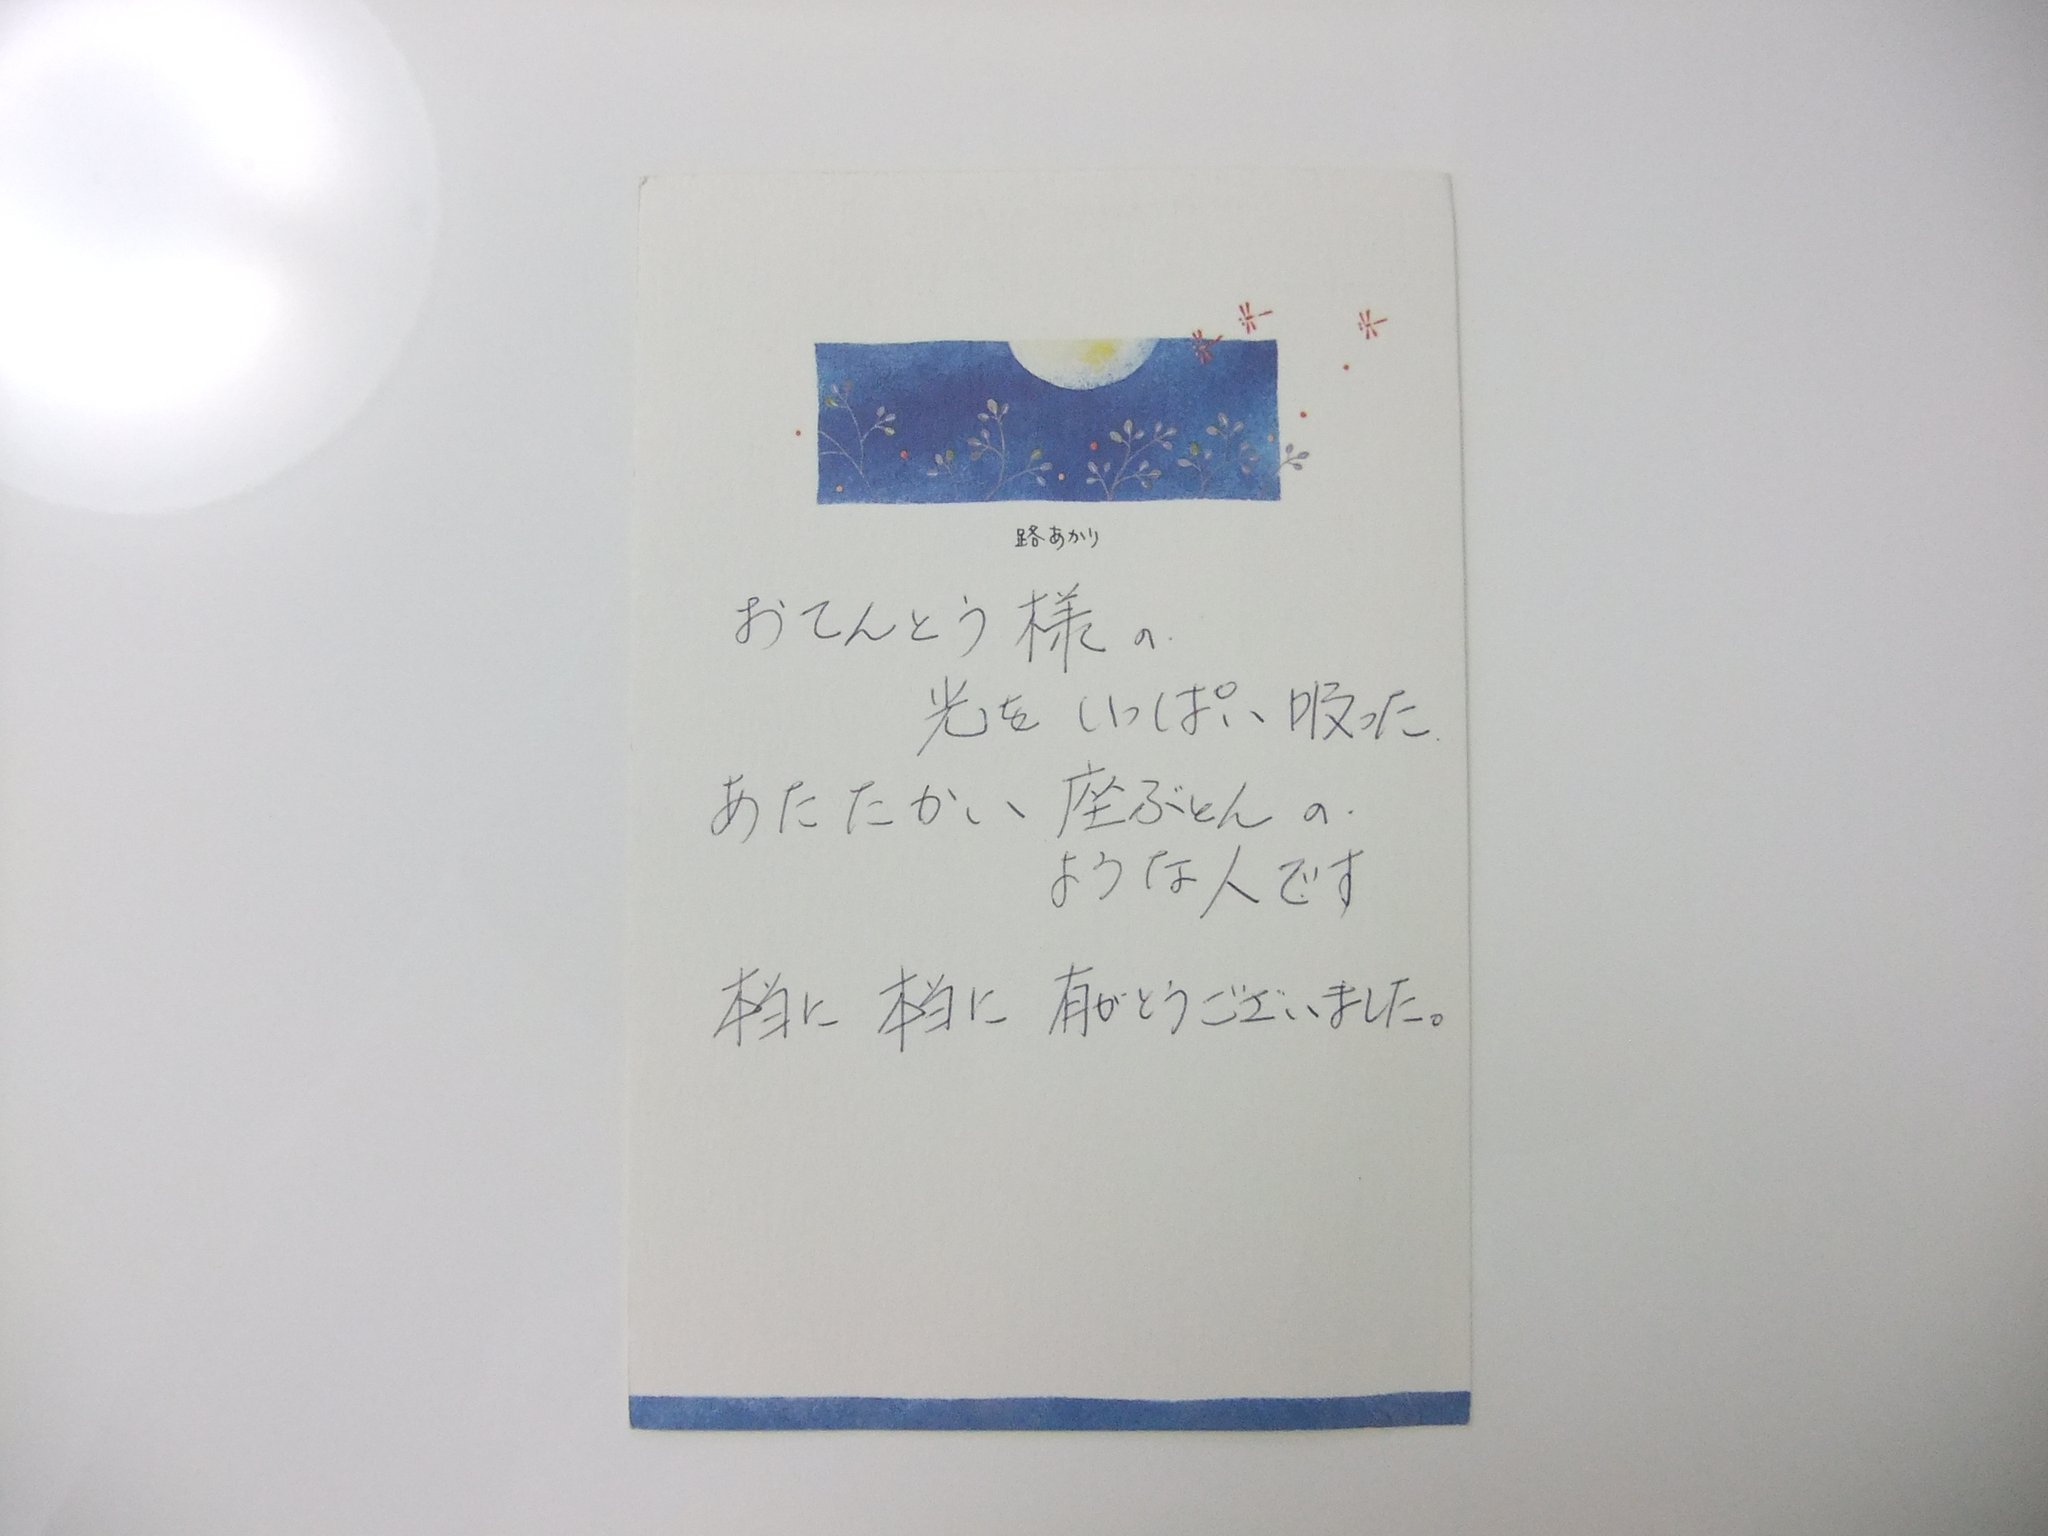 路あかり
おてんとう様の
光をいっぱい吸った
あたたかい座ぶとんの
ような人です
本当に 本当に 有がとうございました。